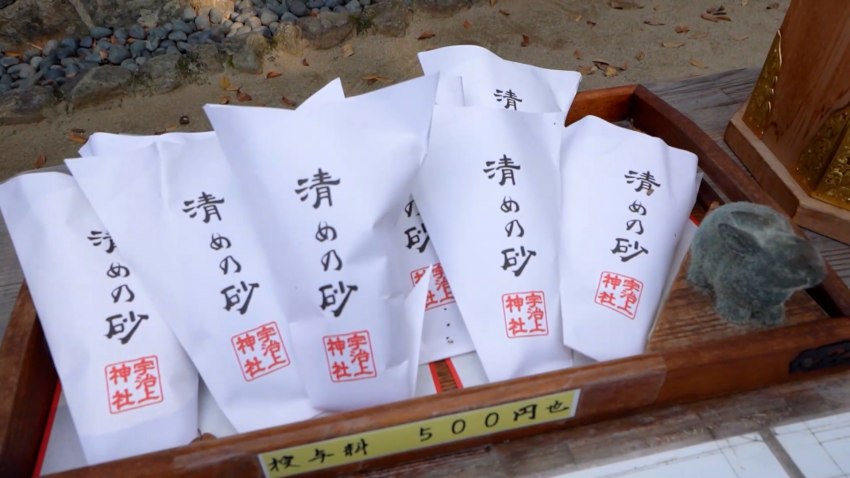 清めの砂
宇治上
神社
清めの砂
宇治上
神社
清めの砂
宇治上
神社
砂
清
清めの砂
宇治上
神社
清めの砂
宇治上
神社
授与料 500円也